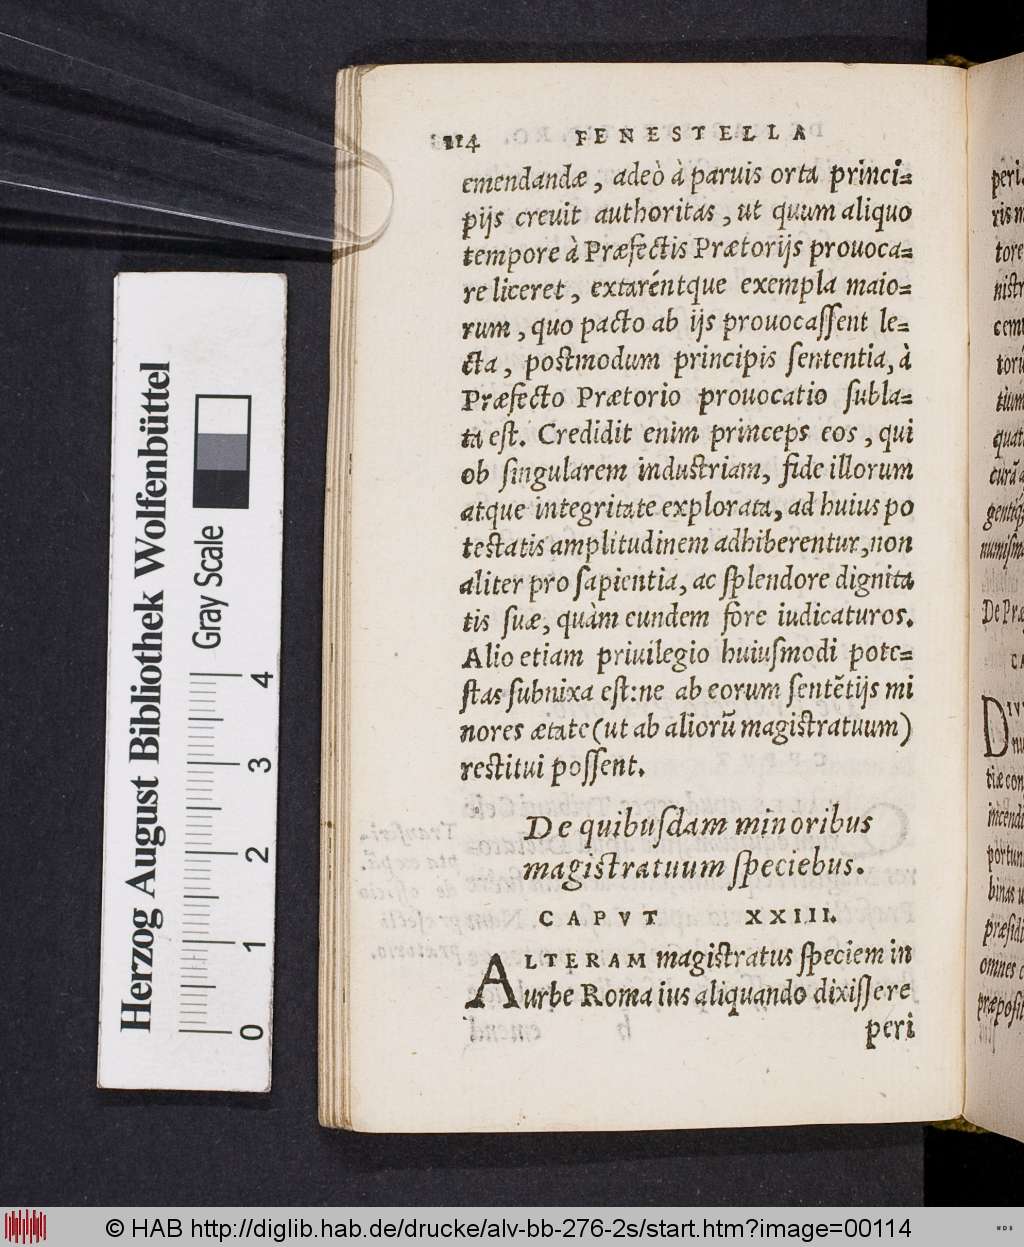 114 FENESTELLA
emendandæ, adeò à paruis orta princi-
pijs creuit authoritas, ut quum aliquo
tempore à Præfectis Prætorijs prouoca-
re liceret, extaréntque exempla maio-
rum, quo pacto ab ijs prouocaſſent le-
cta, postmodum principis ſententia, à
Præfecto Prætorio prouocatio ſubla-
ta eſt. Credidit enim princeps eos, qui
ob ſingularem industriam, fide illorum
atque integritate explorata, ad huius po
testatis amplitudinem adhiberentur, non
aliter pro ſapientia, ac ſplendore dignita
tis ſuæ, quàm eundem fore iudicaturos.
Alio etiam priuilegio huiuſmodi pote-
ſtas ſubnixa eſt: ne ab eorum ſentẽtijs mi
nores ætate (ut ab aliorũ magiſtratuum)
restitui poſſent.
De quibuſdam minoribus
magistratuum ſpeciebus.
CAPVT XXIII.
ALTERAM magistratus ſpeciem in
urbe Roma ius aliquando dixiſſere
peri
peri
tore
niſtr
cem
De Præ
Herzog August Bibliothek Wolfenbüttel
Gray Scale
0 1 2 3 4
© HAB http://diglib.hab.de/drucke/alv-bb-276-2s/start.htm?image=00114